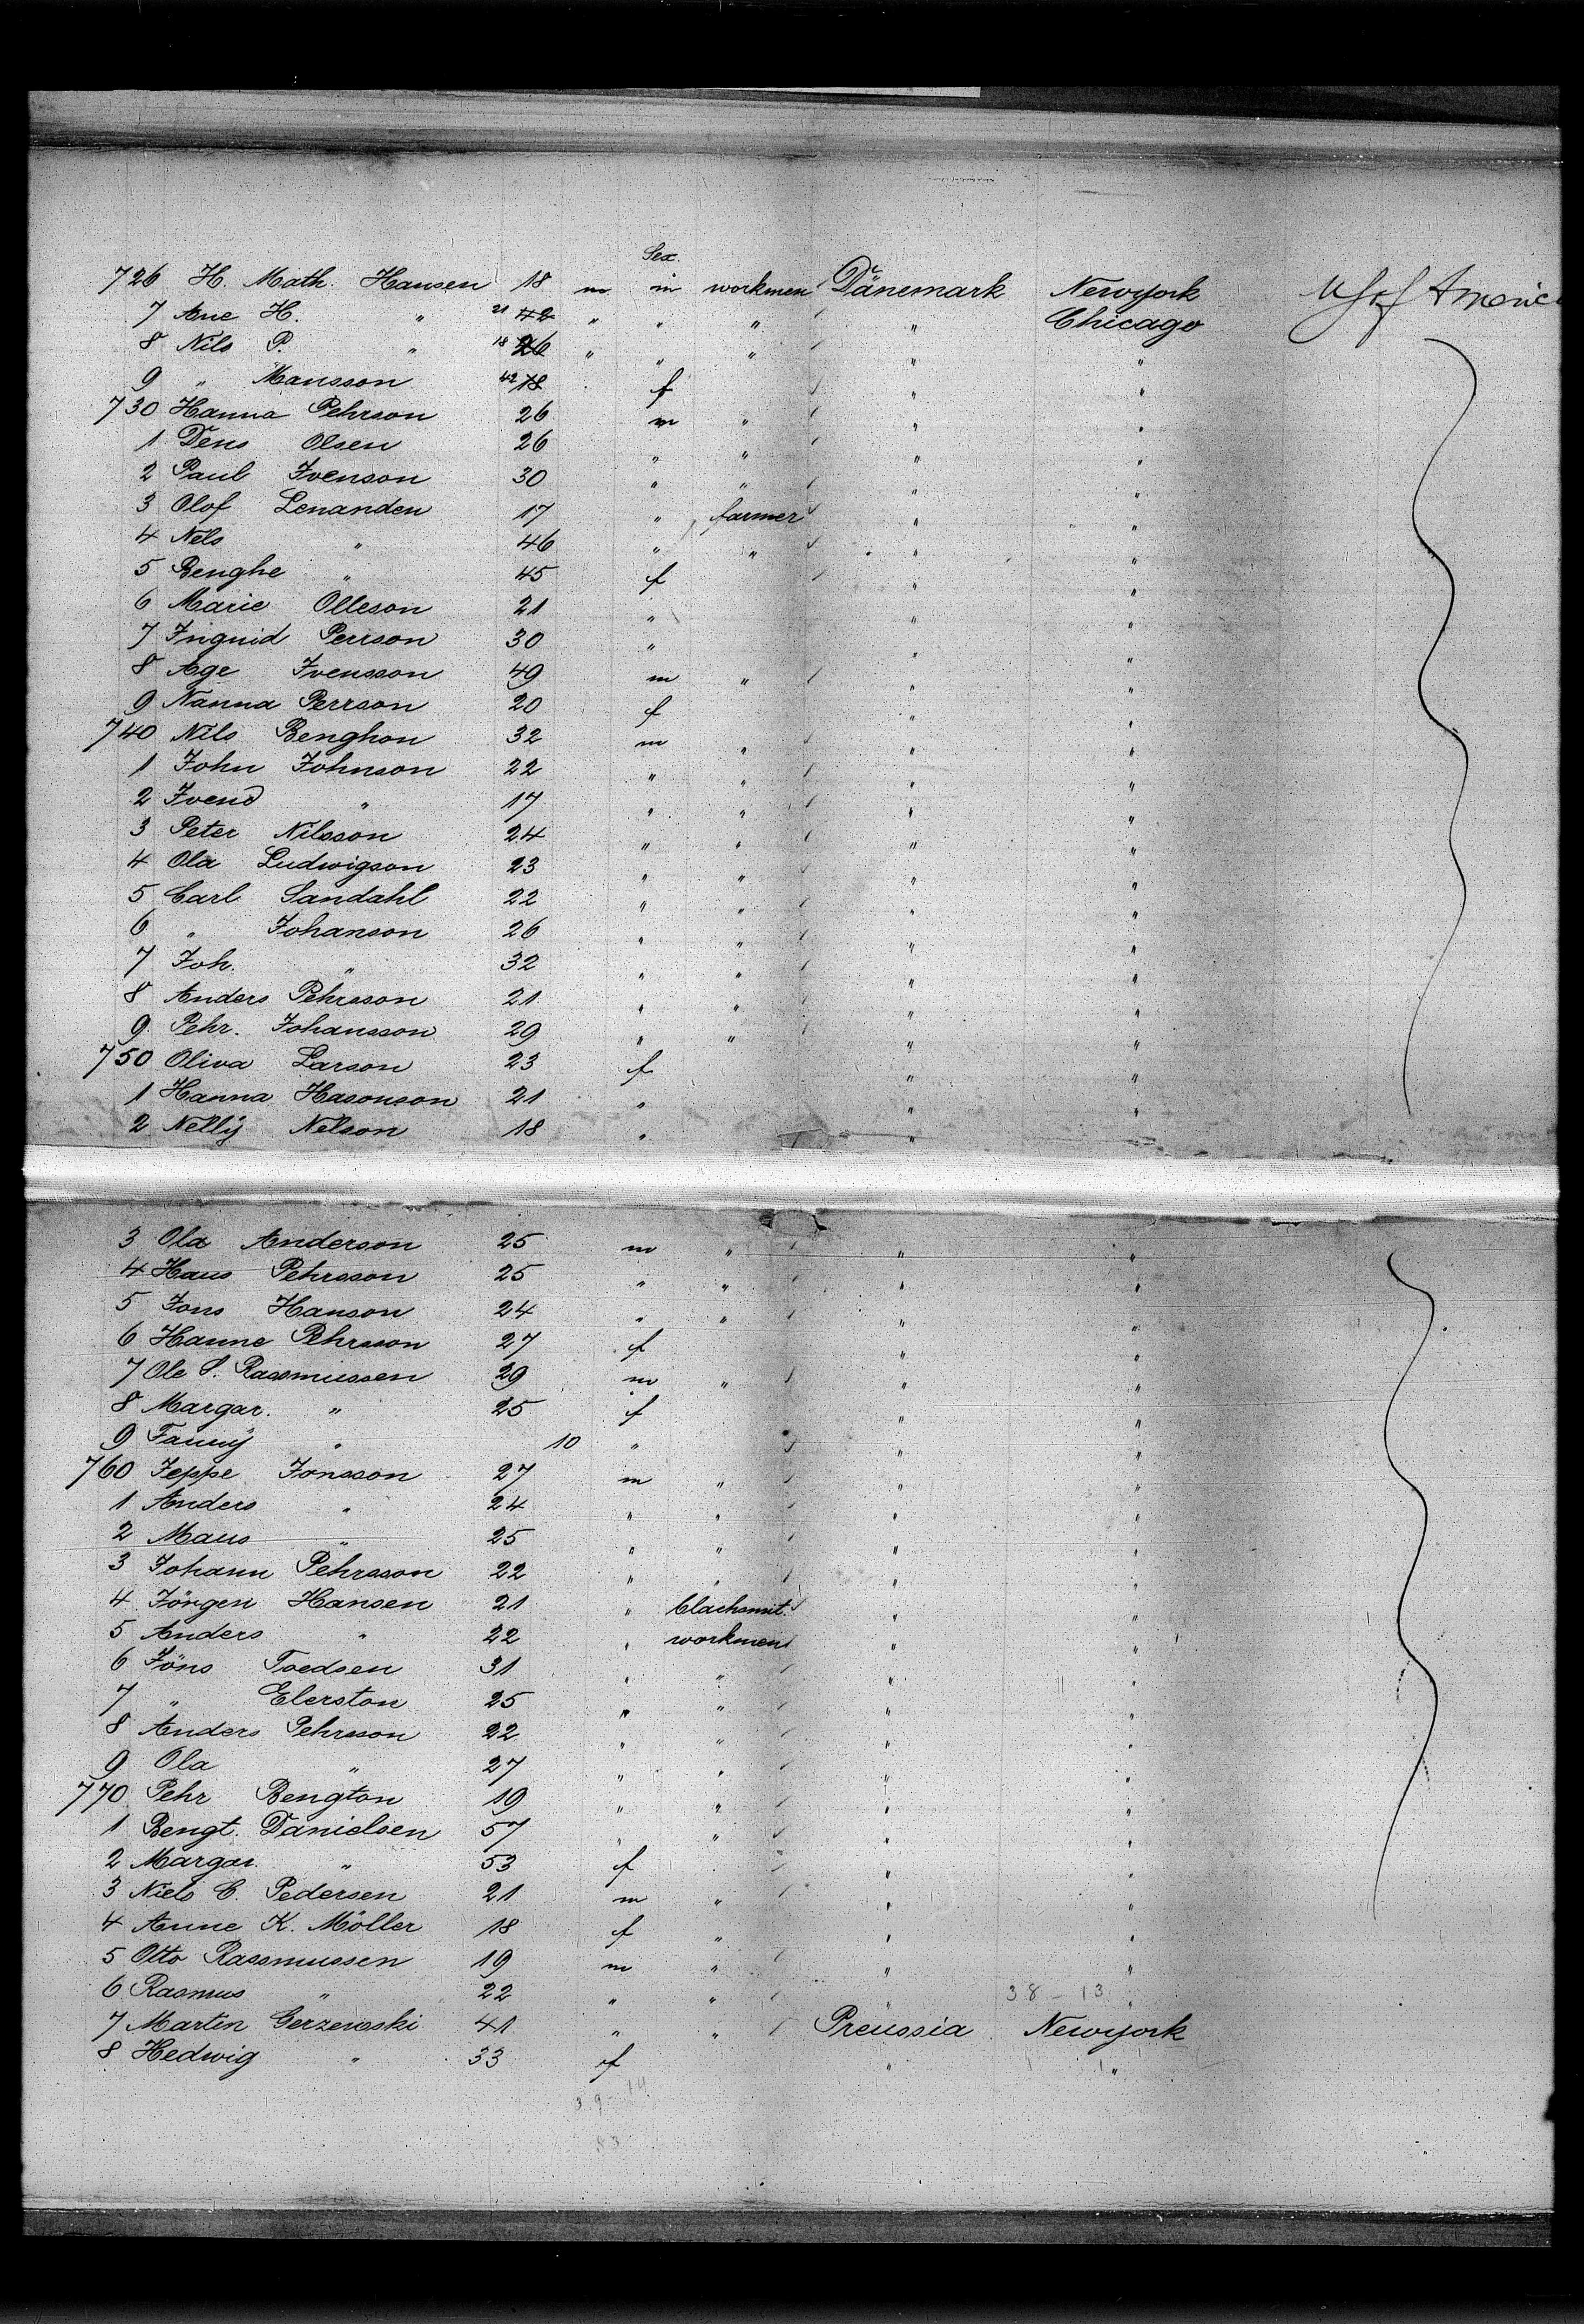 Sex.
726 H. Math. Hansen 18 m m workmen Dänemark Newyork U S of America
7 Ane H. " 21 42 " " " " Chicago
8 Nils P. " 18 26 " " " " "
9 " Mansson 42 18 f " "
730 Hanna Pehrson 26 m " " "
1 Dens Olsen 26 " " " "
2 Paul Ivenson 30 " " " "
3 Olof Lenanden 17 " farmer " "
4 Nels " 46 " " " "
5 Benghe " 45 f " "
6 Marie Olleson 21 " " "
7 Inguid Perrson 30 " " "
8 Age Ivensson 49 m " " "
9 Nanna Perrson 20 f " "
740 Nils Benghon 32 m " " "
1 John Johnson 22 " " " "
2 Ivend " 17 " " " "
3 Peter Nilsson 24 " " " "
4 Ola Ludwigson 23 " " " "
5 Carl Sandahl 22 " " " "
6 " Johanson 26 " " " "
7 Joh. " 32 " " " "
8 Anders Pehrsson 21 " " " "
9 Pehr. Johansson 29 " " " "
750 Oliva Larson 23 f " "
1 Hanna Hasonson 21 " " "
2 Nelly Nelson 18 " " "
3 Ola Anderson 25 m " " "
4 Hans Pehrsson 25 " " " "
5 Jons Hanson 24 " " " "
6 Hanne Pehrsson 27 f " "
7 Ole S. Rassmussen 29 m " " "
8 Margar. " 25 f " "
9 Fanny " 10 " " "
760 Jeppe Jonsson 27 m " " "
1 Anders " 24 " " " "
2 Maus " 25 " " " "
3 Johann Pehrsson 22 " " " "
4 Jörgen Hansen 21 " blachsmit. " "
5 Anders " 22 " workmen " "
6 Jöns Toedsen 31 " " " "
7 " Elerston 25 " " " "
8 Anders Pehrsson 22 " " " "
9 Ola " 27 " " " "
770 Pehr Bengton 19 " " " "
1 Bengt. Danielsen 57 " " " "
2 Margar. " 53 f " "
3 Niels C. Pedersen 21 m " " "
4 Anne K. Möller 18 f " " "
5 Otto Rassmussen 19 m " " "
6 Rasmus " 22 " " " 38-13 "
7 Martin Gerzewski 41 " " Preussia Newyork
8 Hedwig " 33 f " "
39-14
83